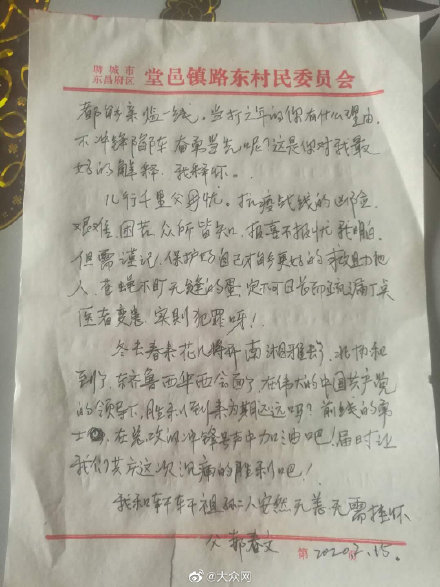 聊城市
东昌府区 堂邑镇路东村民委员会
都能亲临一线，当打之年的你有什么理由
不冲锋陷车奋勇当先呢？这是你对我最
好的解释，我释怀。
儿行千里父母忧。抗疫战线的凶险
艰难、困苦众所皆知，报喜不报忧我明白
但需谨记，保护好自己才能更好的救助他
人，苍蝇不盯无缝的蛋，
医者 实则犯罪呀！
冬去春来花儿将开，南湘雅去了，北协和
到了，东齐鲁西华西会面了，在伟大的中国共产党
的领导下，胜利到来为期还远吗？前线的勇
士，在 冲锋号声中加油吧！届时让
我们共庆这次沉痛的胜利吧！
我和轩轩祖孙二人安然无恙无需挂怀
父 郝春文
第 2020.2.15. 页
@大众网